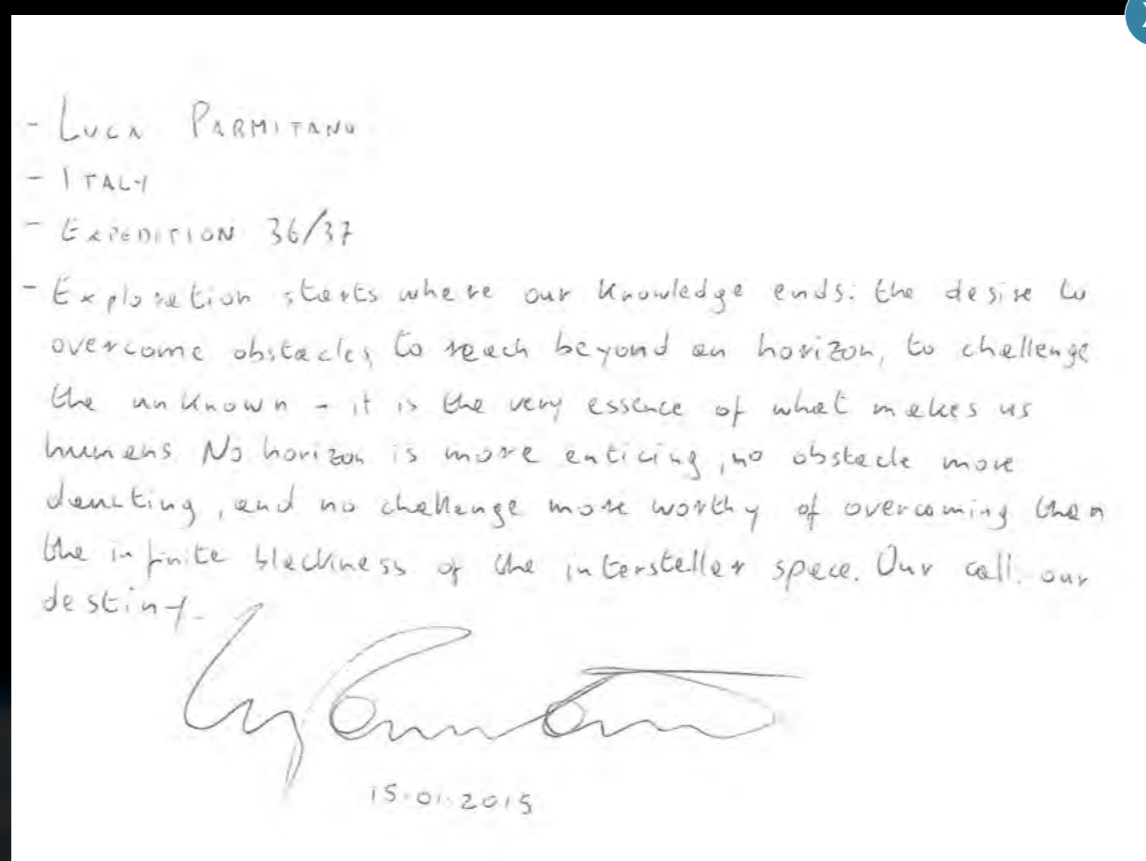 - LUCA PARMITANO
- ITALY
- EXPEDITION 36/37
- Exploration starts where our knowledge ends: the desire to
overcome obstacles, to reach beyond an horizon, to challenge
the unknown - it is the very essence of what makes us
humans. No horizon is more enticing, no obstacle more
daunting, and no challenge more worthy of overcoming than
the infinite blackness of the interstellar space. Our call, our
destiny.
15.01.2015